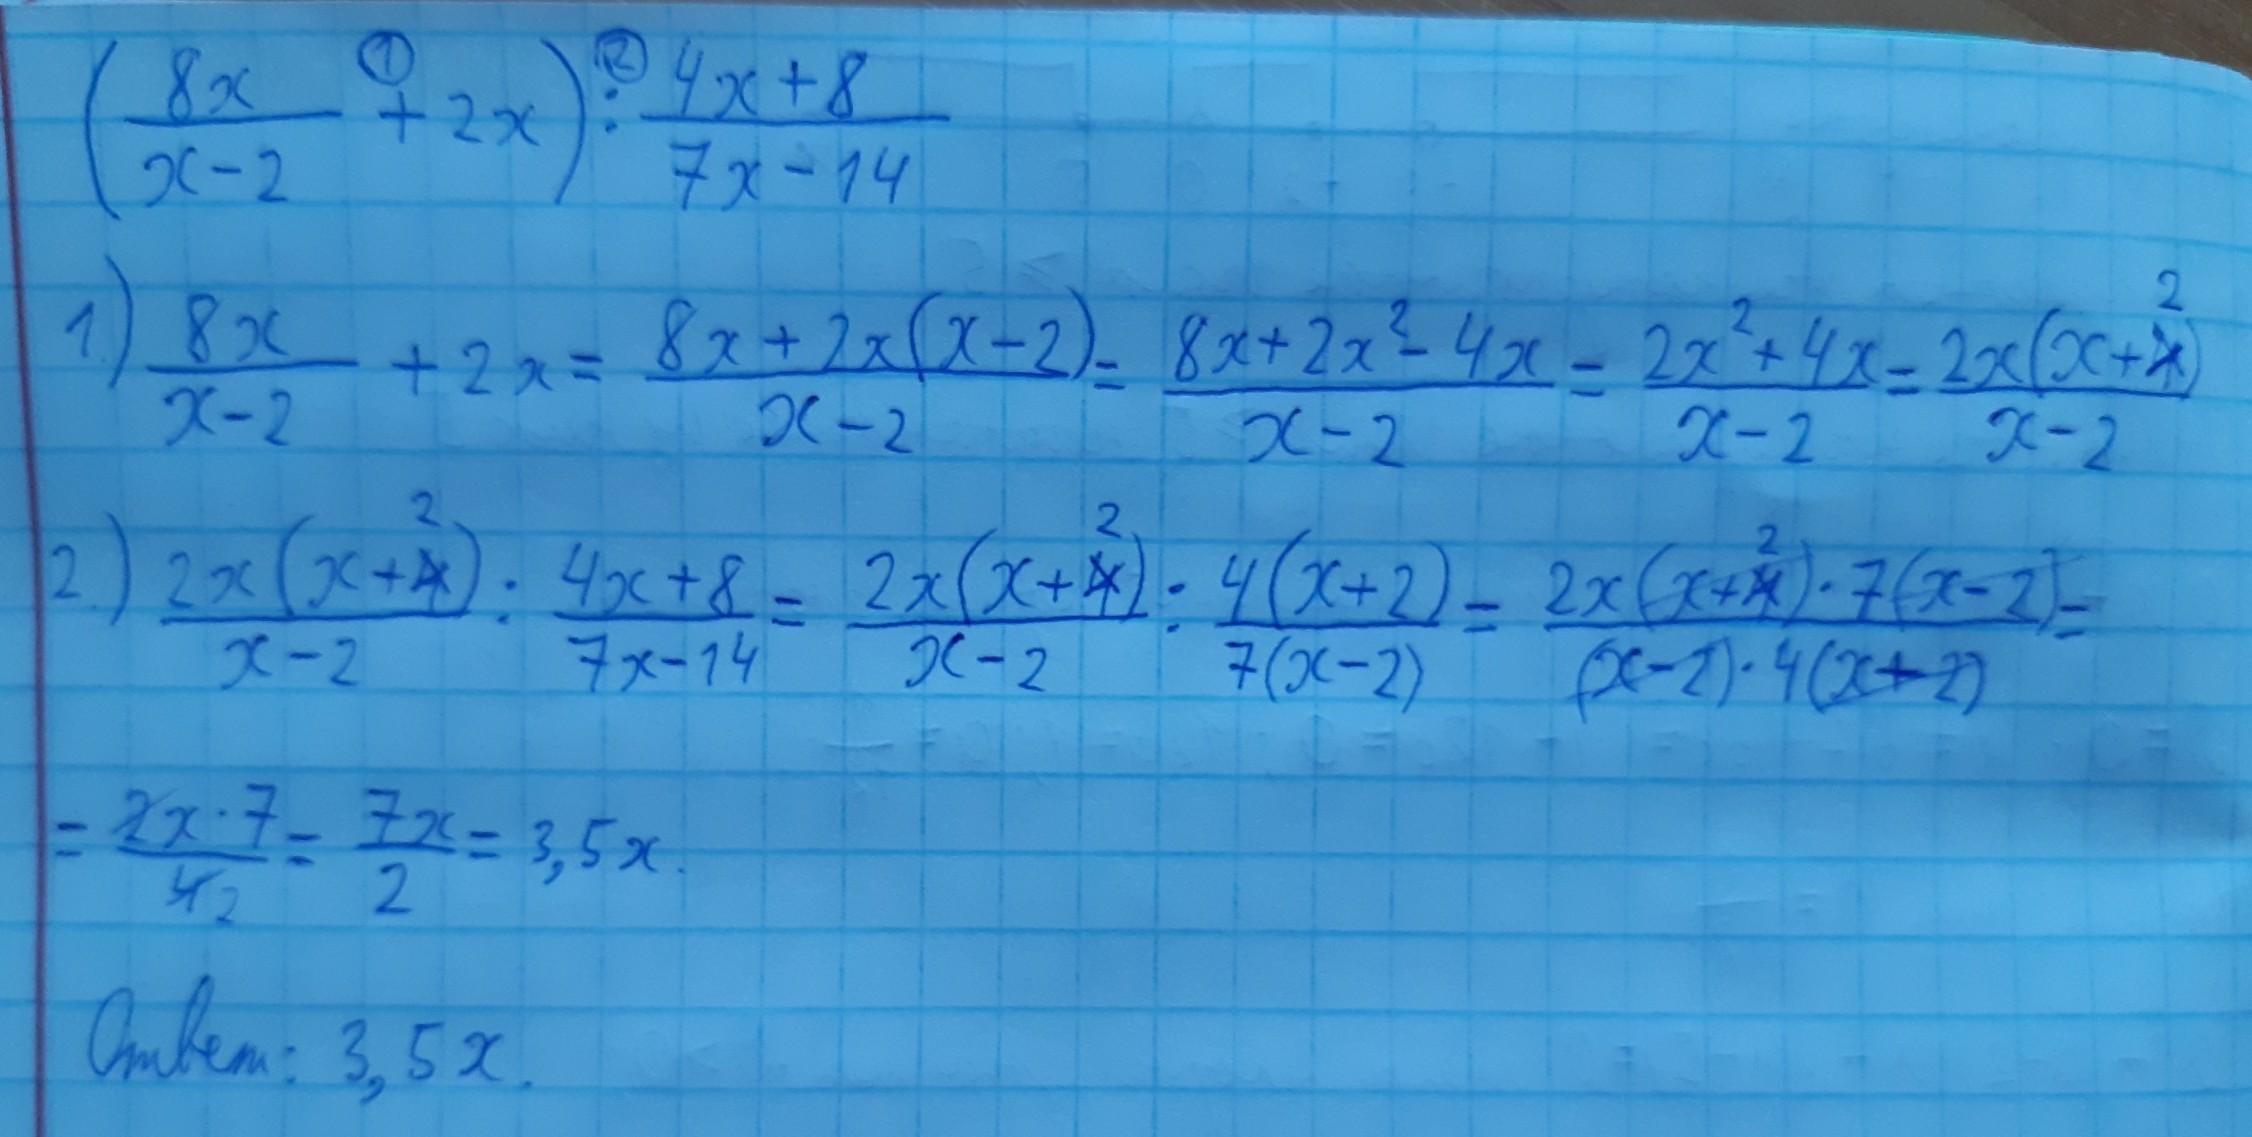 (8x/(x-2) + 2x) : (4x+8)/(7x-14)
① ②
1.) 8x/(x-2) + 2x = (8x+2x(x-2))/(x-2) = (8x+2x²-4x)/(x-2) = (2x²+4x)/(x-2) = 2x(x+2)/(x-2)
2.) 2x(x+2)/(x-2) : (4x+8)/(7x-14) = 2x(x+2)/(x-2) : 4(x+2)/(7(x-2)) = (2x(x+2)·7(x-2))/((x-2)·4(x+2)) =
= (2x·7)/(4 2) = 7x/2 = 3,5x.
Ответ: 3,5x.